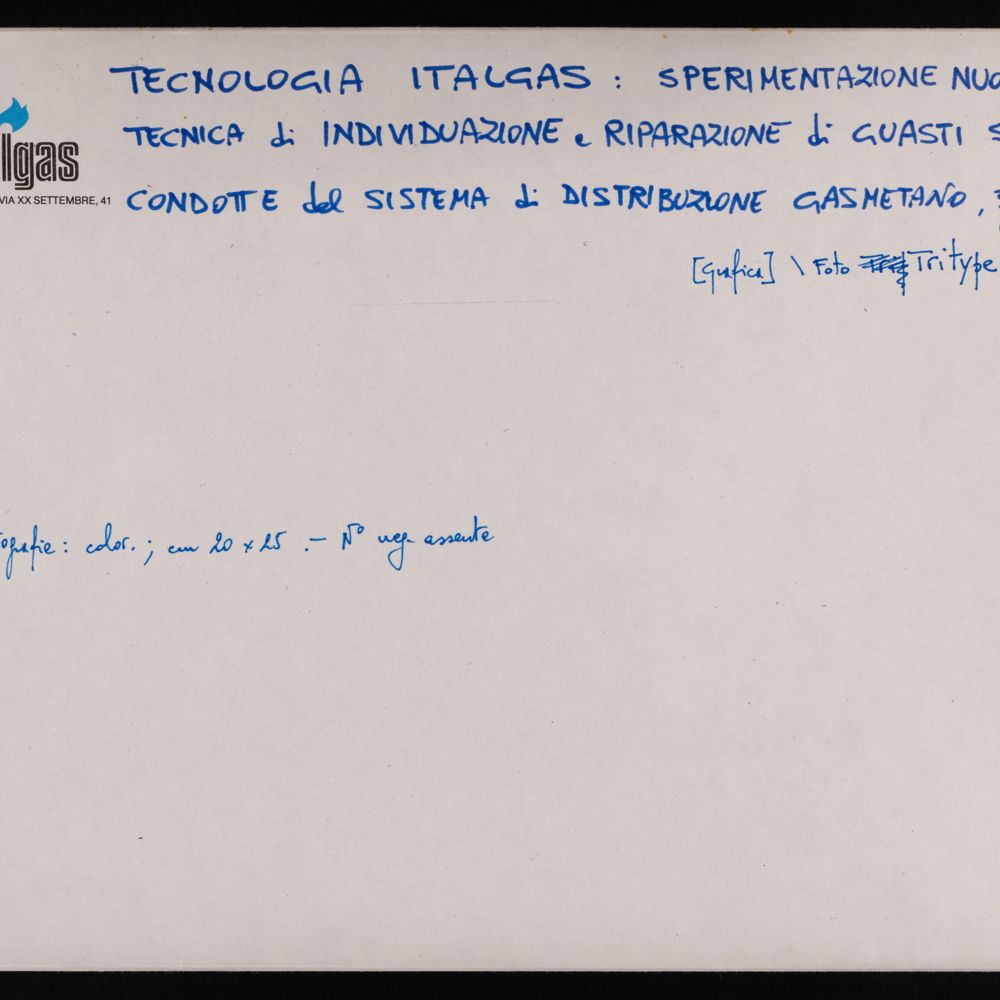 TECNOLOGIA ITALGAS : SPERIMENTAZIONE NUO
TECNICA di INDIVIDUAZIONE e RIPARAZIONE di GUASTI S
lgas
VIA XX SETTEMBRE, 41
CONDOTTE del SISTEMA di DISTRIBUZIONE GASMETANO,
[Grafica] \ Foto Tritype
ografie : color. ; cm 20 x 25 .- N° neg. assente